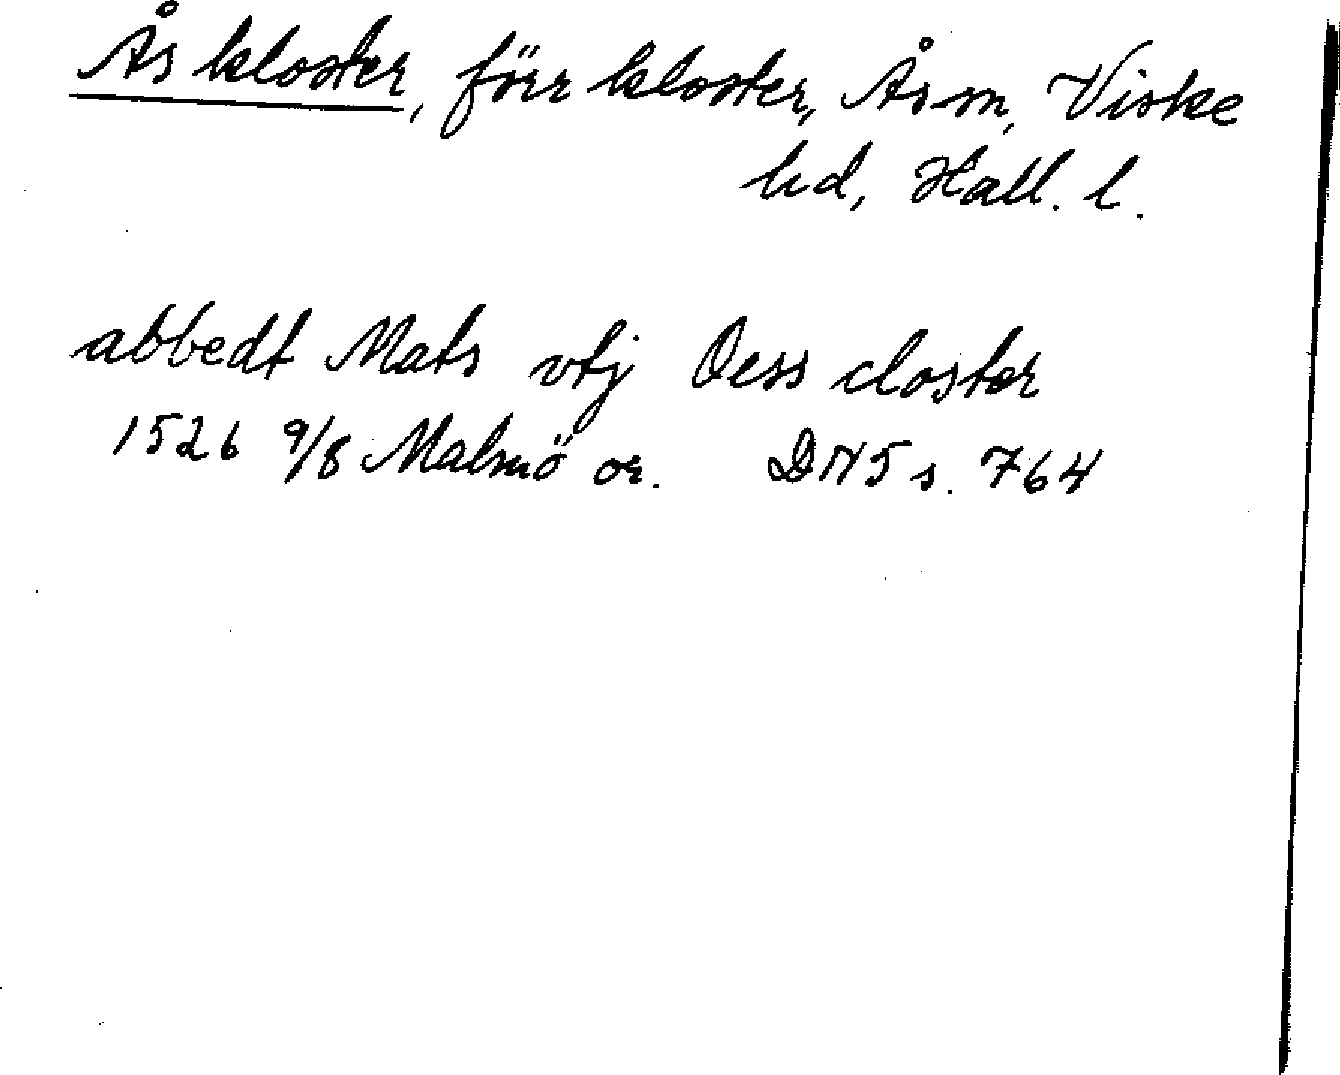 Ås kloster, förr kloster, Ås sn, Viske
hd, Hall. l.
abbedt Mats vtj Oess closter
1526 9/8 Malmö or. DN 5 s. 764